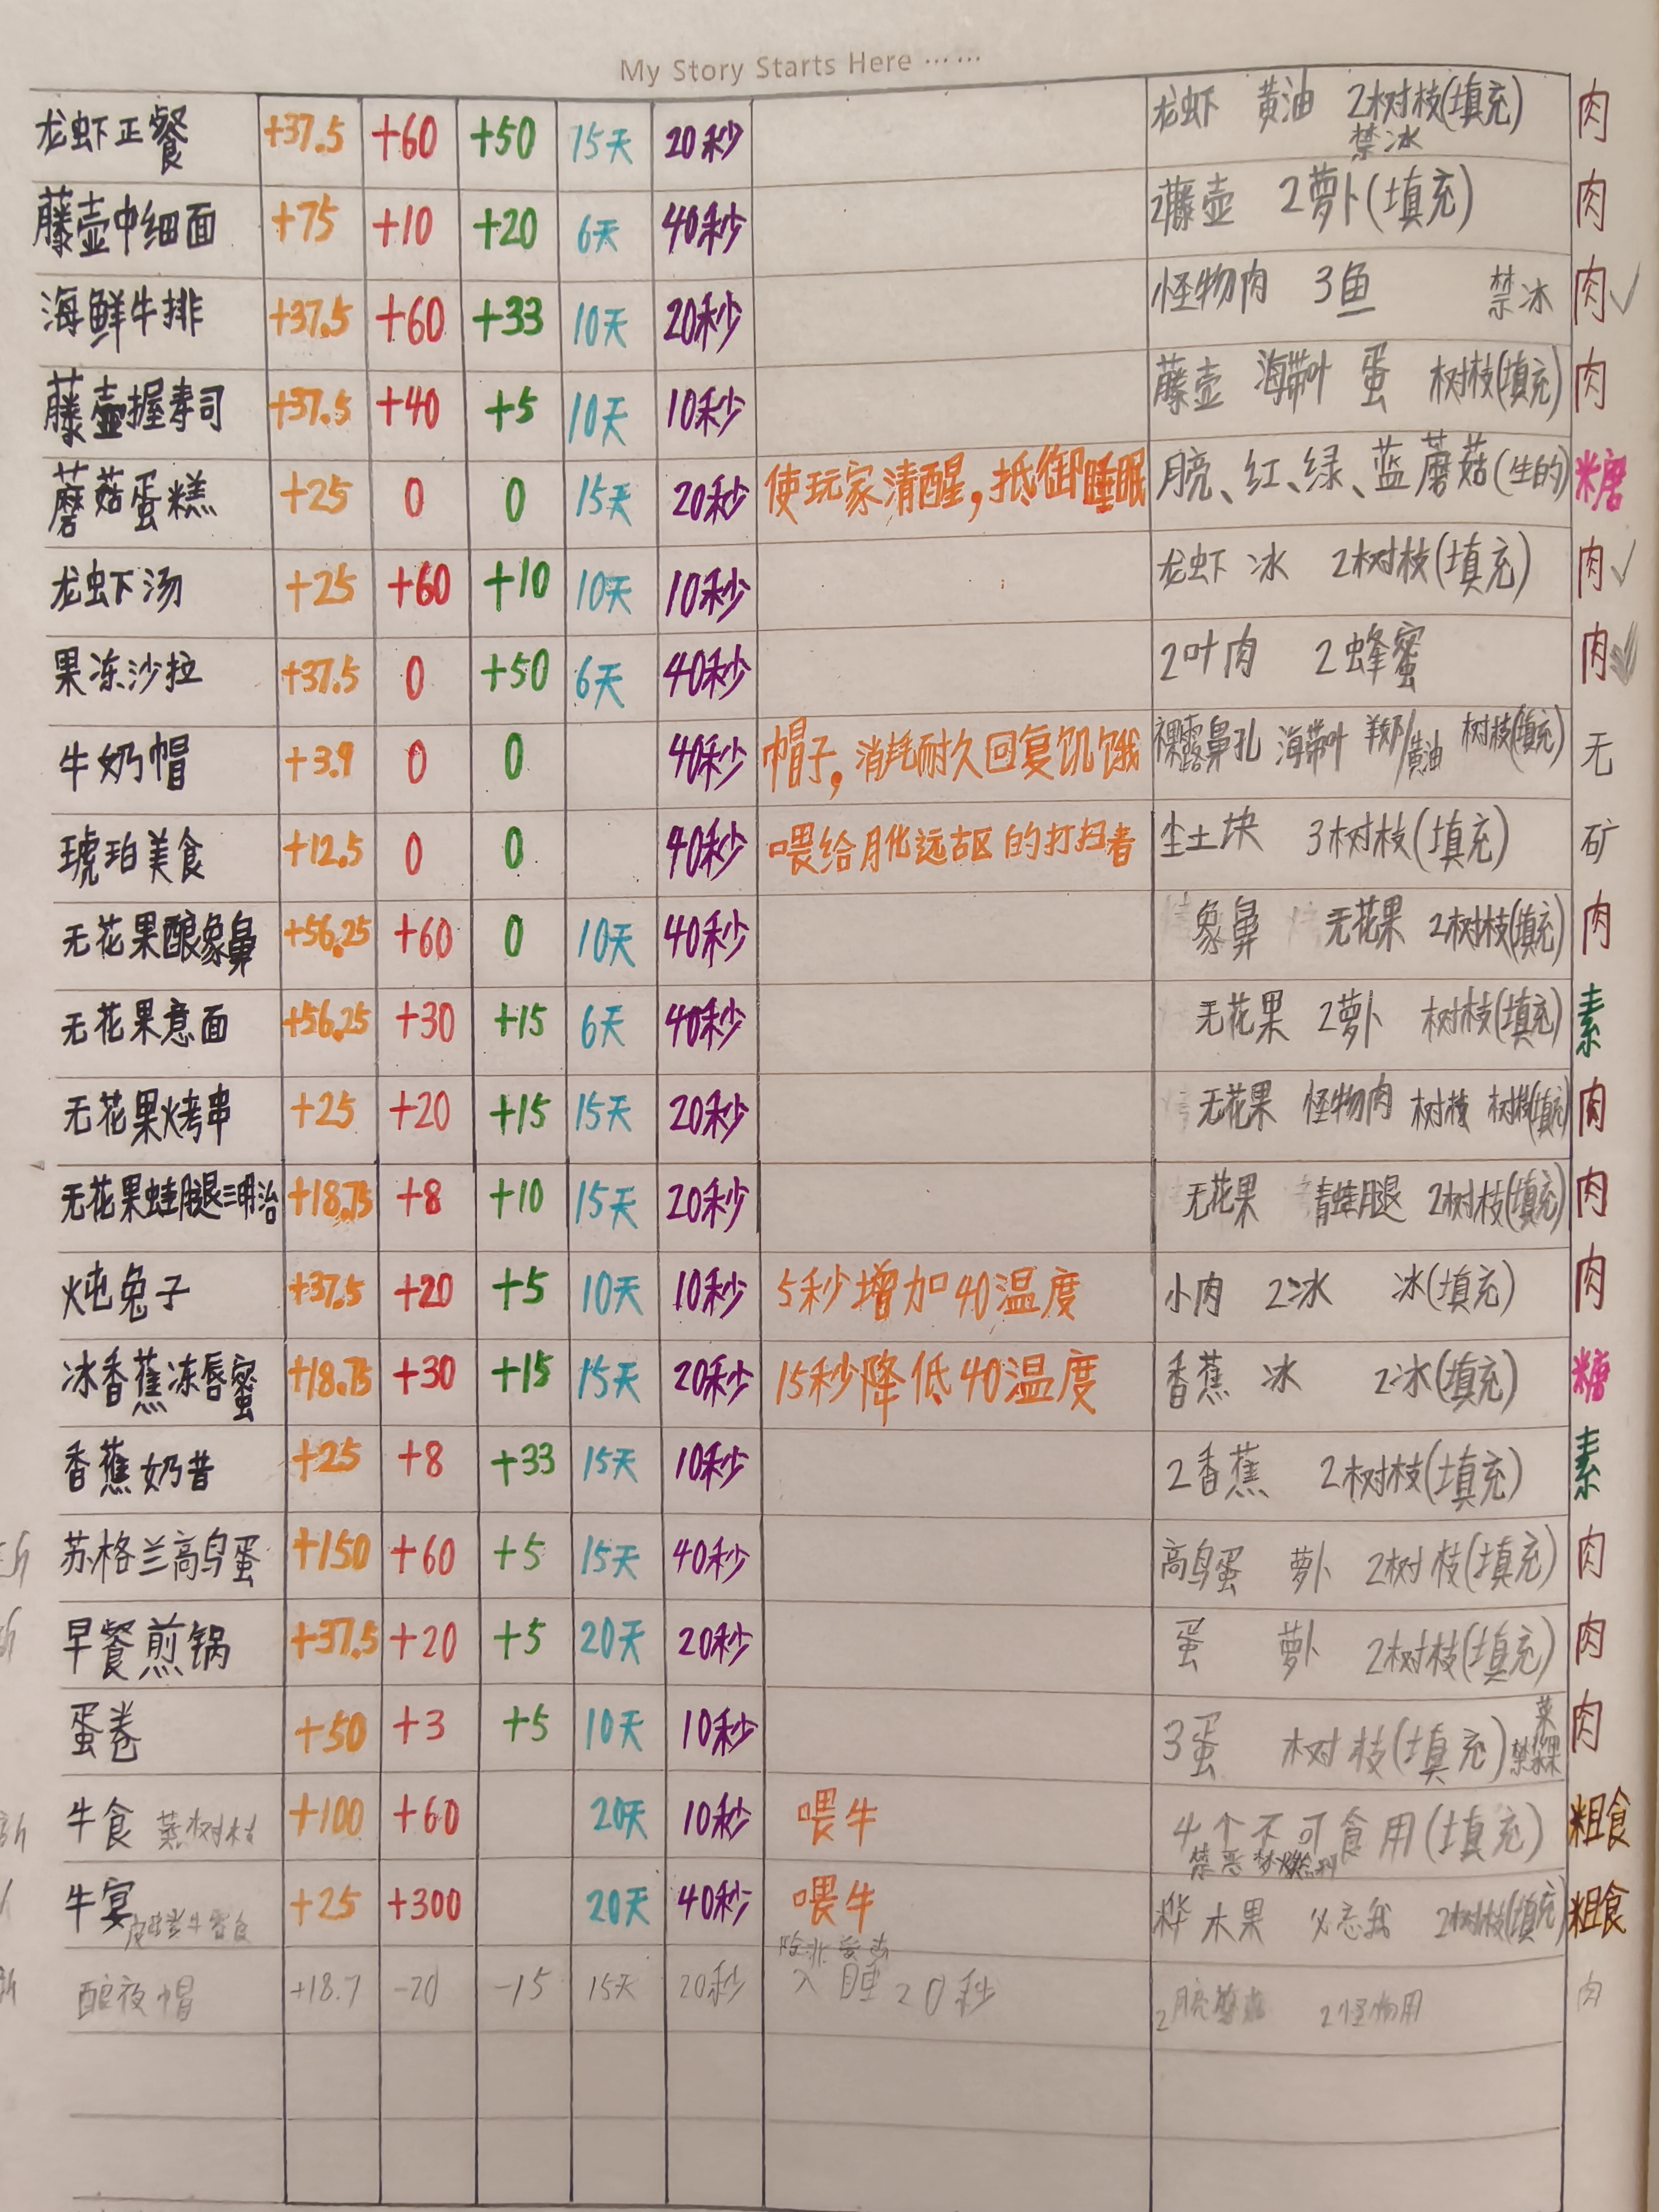 My Story Starts Here ……
龙虾正餐 +37.5 +60 +50 15天 20秒 龙虾 黄油 2树枝(填充) 禁冰 肉
藤壶中细面 +75 +10 +20 6天 40秒 2藤壶 2萝卜(填充) 肉
海鲜牛排 +37.5 +60 +33 10天 20秒 怪物肉 3鱼 禁冰 肉✓
藤壶握寿司 +37.5 +40 +5 10天 10秒 藤壶 海带叶 蛋 树枝(填充) 肉
蘑菇蛋糕 +25 0 0 15天 20秒 使玩家清醒，抵御睡眠 月亮、红、绿、蓝蘑菇(生的) 糖
龙虾汤 +25 +60 +10 10天 10秒 龙虾 冰 2树枝(填充) 肉✓
果冻沙拉 +37.5 0 +50 6天 40秒 2叶肉 2蜂蜜 肉
牛奶帽 +3.9 0 0 40秒 帽子，消耗耐久回复饥饿 裸露鼻孔 海带叶 羊奶/黄油 树枝(填充) 无
琥珀美食 +12.5 0 0 40秒 喂给月化远古区的打扫者 尘土块 3树枝(填充) 矿
无花果酿象鼻 +56.25 +60 0 10天 40秒 象鼻 无花果 2树枝(填充) 肉
无花果意面 +56.25 +30 +15 6天 40秒 无花果 2萝卜 树枝(填充) 素
无花果烤串 +25 +20 +15 15天 20秒 无花果 怪物肉 树枝 树枝(填充) 肉
无花果蛙腿三明治 +18.75 +8 +10 15天 20秒 无花果 青蛙腿 2树枝(填充) 肉
炖兔子 +37.5 +20 +5 10天 10秒 5秒增加40温度 小肉 2冰 冰(填充) 肉
冰香蕉冻唇蜜 +18.75 +30 +15 15天 20秒 15秒降低40温度 香蕉 冰 2冰(填充) 糖
香蕉奶昔 +25 +8 +33 15天 10秒 2香蕉 2树枝(填充) 素
苏格兰高鸟蛋 +150 +60 +5 15天 40秒 高鸟蛋 萝卜 2树枝(填充) 肉
早餐煎锅 +37.5 +20 +5 20天 20秒 蛋 萝卜 2树枝(填充) 肉
蛋卷 +50 +3 +5 10天 10秒 3蛋 树枝(填充) 肉
牛食 蒸树枝 +100 +60 20天 10秒 喂牛 4个不可食用(填充) 禁恶梦燃料 粗食
牛宴 +25 +300 20天 40秒 喂牛 桦木果 必忘我 2树枝(填充) 粗食
酿夜帽 +18.7 -20 -15 15天 20秒 入睡20秒 肉